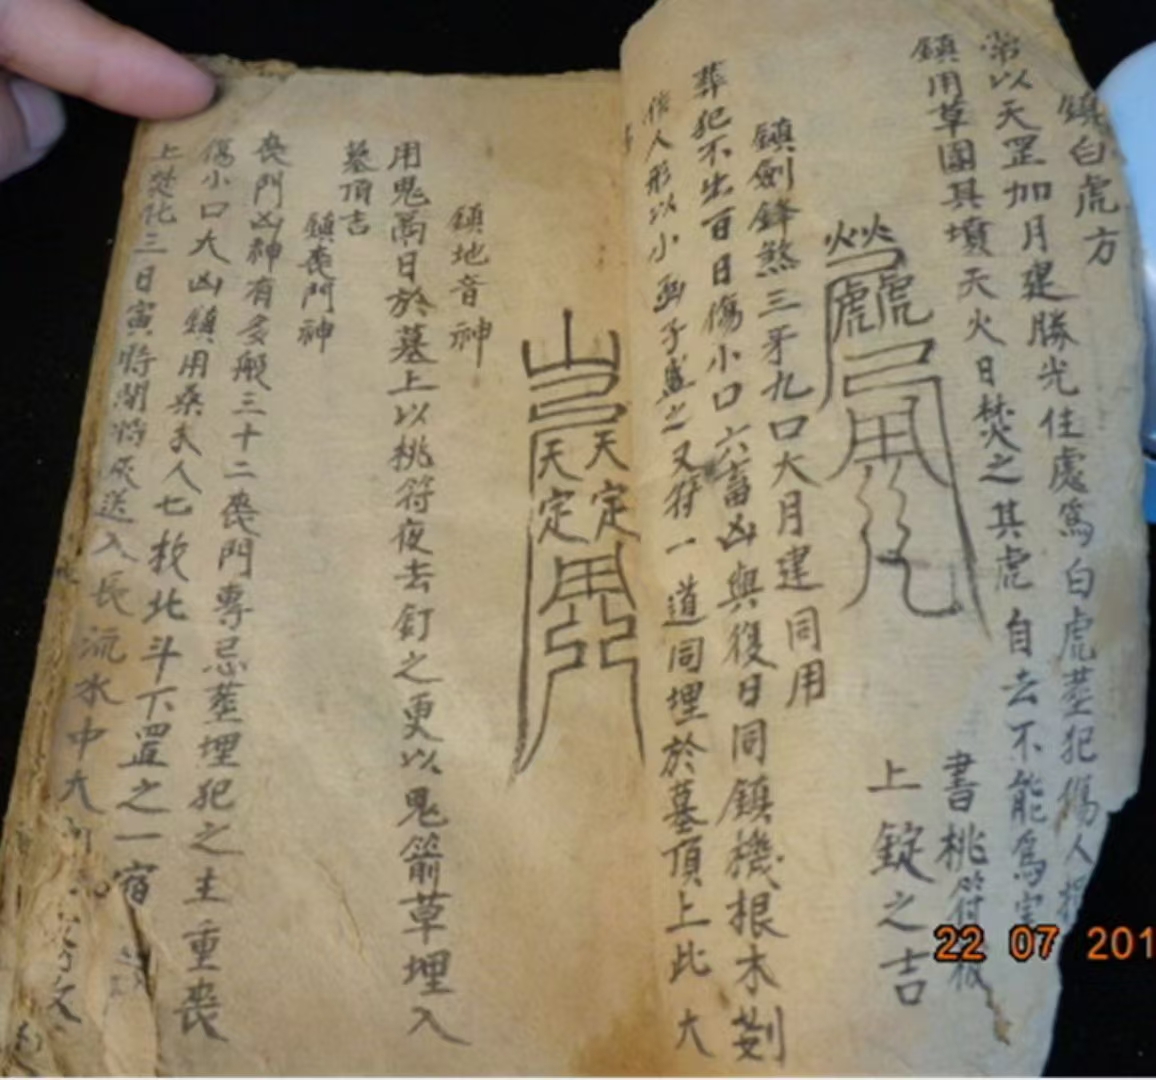 鎮白虎方
常以天罡加月建勝光住處爲白虎塟犯傷人
鎮用草圍其墳天火日焚之其虎自去不能爲害
書桃符板
上錠之吉
虎虎
用
鎮劍鋒煞三牙九口大月建同用
葬犯不出百日傷小口六畜凶與復日同鎮機根木剗
作人形以小函子盛之又符一道同埋於墓頂上此大
山
天天
定定
用
鎮地音神
用鬼禹日於墓上以桃符夜去釘之更以鬼箭草埋入
墓頂吉
鎮喪門神
喪門凶神有多般三十二喪門專忌塟埋犯之主重喪
傷小口大凶鎮用桑木人七枚北斗下置之一宿
上焚化三日寅時開將灰送入長流水中大
22 07 201